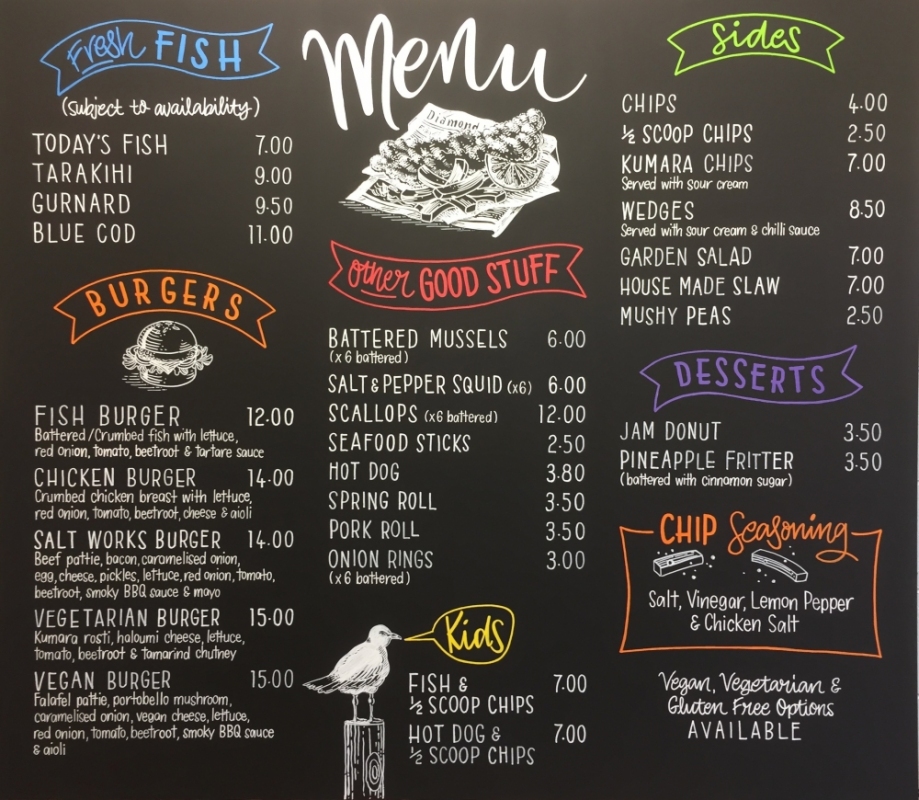 Menu
Fresh FISH
(subject to availability)
TODAY'S FISH 7.00
TARAKIHI 9.00
GURNARD 9.50
BLUE COD 11.00
BURGERS
FISH BURGER 12.00
Battered/Crumbed fish with lettuce,
red onion, tomato, beetroot & tartare sauce
CHICKEN BURGER 14.00
Crumbed chicken breast with lettuce,
red onion, tomato, beetroot, cheese & aioli
SALT WORKS BURGER 14.00
Beef pattie, bacon, caramelised onion,
egg, cheese, pickles, lettuce, red onion, tomato,
beetroot, smoky BBQ sauce & mayo
VEGETARIAN BURGER 15.00
Kumara rosti, haloumi cheese, lettuce,
tomato, beetroot & tamarind chutney
VEGAN BURGER 15.00
Falafel pattie, portobello mushroom,
caramelised onion, vegan cheese, lettuce,
red onion, tomato, beetroot, smoky BBQ sauce
& aioli
Diamond
other GOOD STUFF
BATTERED MUSSELS 6.00
(x 6 battered)
SALT & PEPPER SQUID (x6) 6.00
SCALLOPS (x6 battered) 12.00
SEAFOOD STICKS 2.50
HOT DOG 3.80
SPRING ROLL 3.50
PORK ROLL 3.50
ONION RINGS 3.00
(x 6 battered)
Kids
FISH & 7.00
½ SCOOP CHIPS
HOT DOG & 7.00
½ SCOOP CHIPS
Sides
CHIPS 4.00
½ SCOOP CHIPS 2.50
KUMARA CHIPS 7.00
Served with sour cream
WEDGES 8.50
Served with sour cream & chilli sauce
GARDEN SALAD 7.00
HOUSE MADE SLAW 7.00
MUSHY PEAS 2.50
DESSERTS
JAM DONUT 3.50
PINEAPPLE FRITTER 3.50
(battered with cinnamon sugar)
CHIP Seasoning
Salt, Vinegar, Lemon Pepper
& Chicken Salt
Vegan, Vegetarian &
Gluten Free Options
AVAILABLE